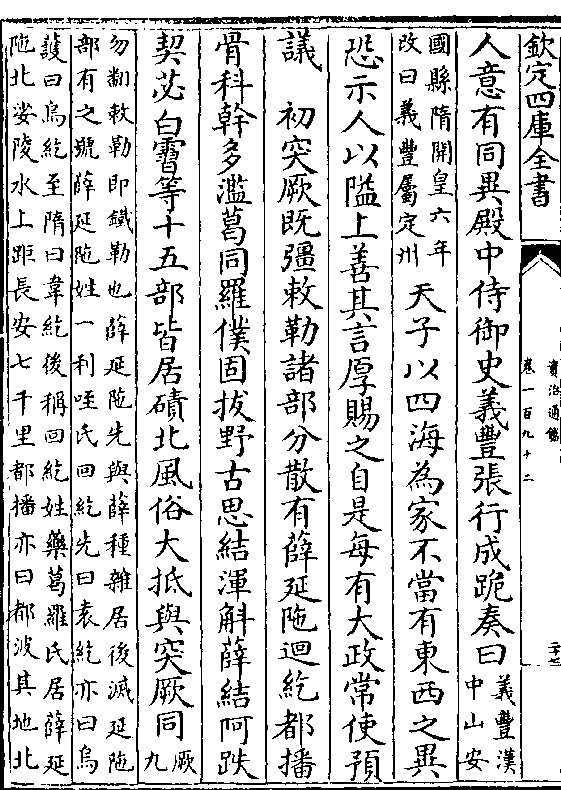 欽定四庫全書
資治通鑑
卷一百九十二
人意有同異殿中侍御史義豐張行成跪奏曰
義豐漢
中山安
國縣隋開皇六年
改曰義豐屬定州
天子以四海為家不當有東西之異
恐示人以隘上善其言厚賜之自是每有大政常使預
議　初突厥既彊敕勒諸部分散有薛延陁迴紇都播
骨科幹多濫葛同羅僕固拔野古思結渾斛薛結阿跌
契苾白霫等十五部皆居磧北風俗大抵與突厥同
厥
九
勿剏敕勒即鐵勒也薛延陁先與薛種雜居後滅延陁
部有之號薛延陁姓一利咥氏回紇先曰袁紇亦曰烏
護曰烏紇至隋曰韋紇後稱回紇姓藥葛羅氏居薛延
陁北娑陵水上距長安七千里都播亦曰都波其地北